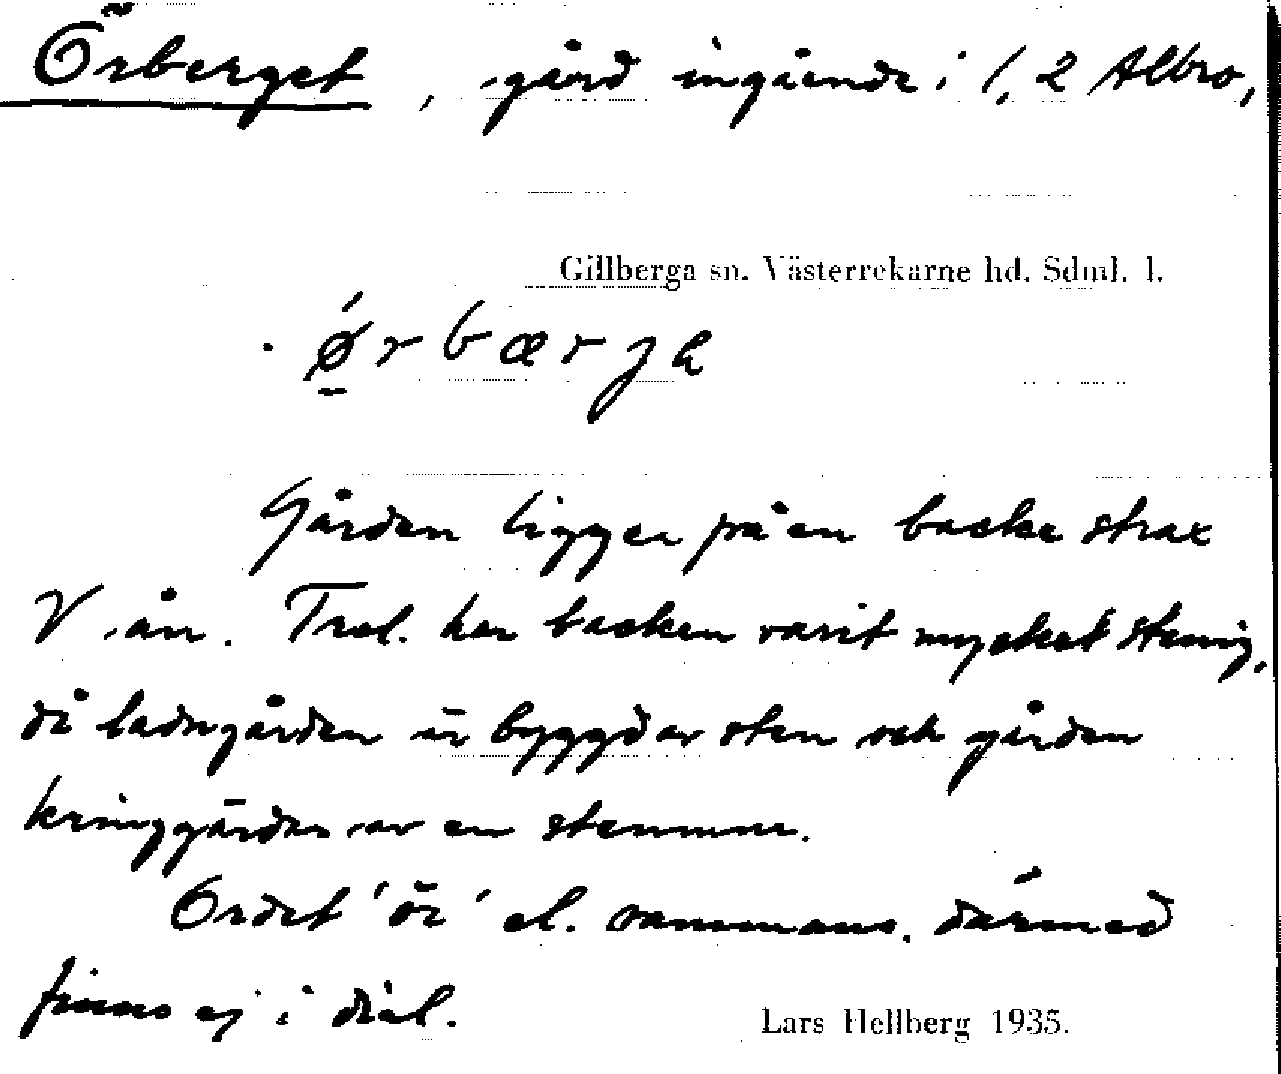 Örberget, gård ingående i 1,2 Albro,
Gillberga sn. Västerrekarne hd. Sdml. l.
ǿ̱rbærja
Gården ligger på en backe strax
V ån. Trol. har backen varit mycket stenig,
då ladugården är byggd av sten och gården
kringgärdas av en stenmur.
Ordet 'ör' el. sammans. därmed
finns ej i dial.
Lars Hellberg 1935.